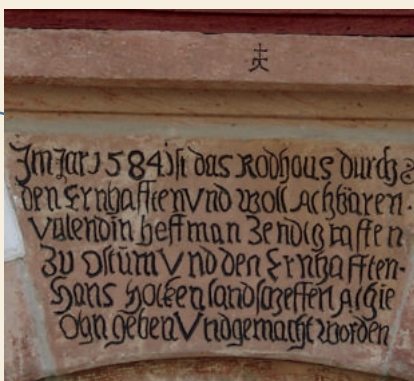 Im Jar 1584 ist das Rodhous durch
den Ernhafften Vnd Woll Achbaren
Valendin Heffman Zendtgraffen
Zu Ostum Vnd den Ernhafften
Hans Holzen
Vnd gemacht Worden